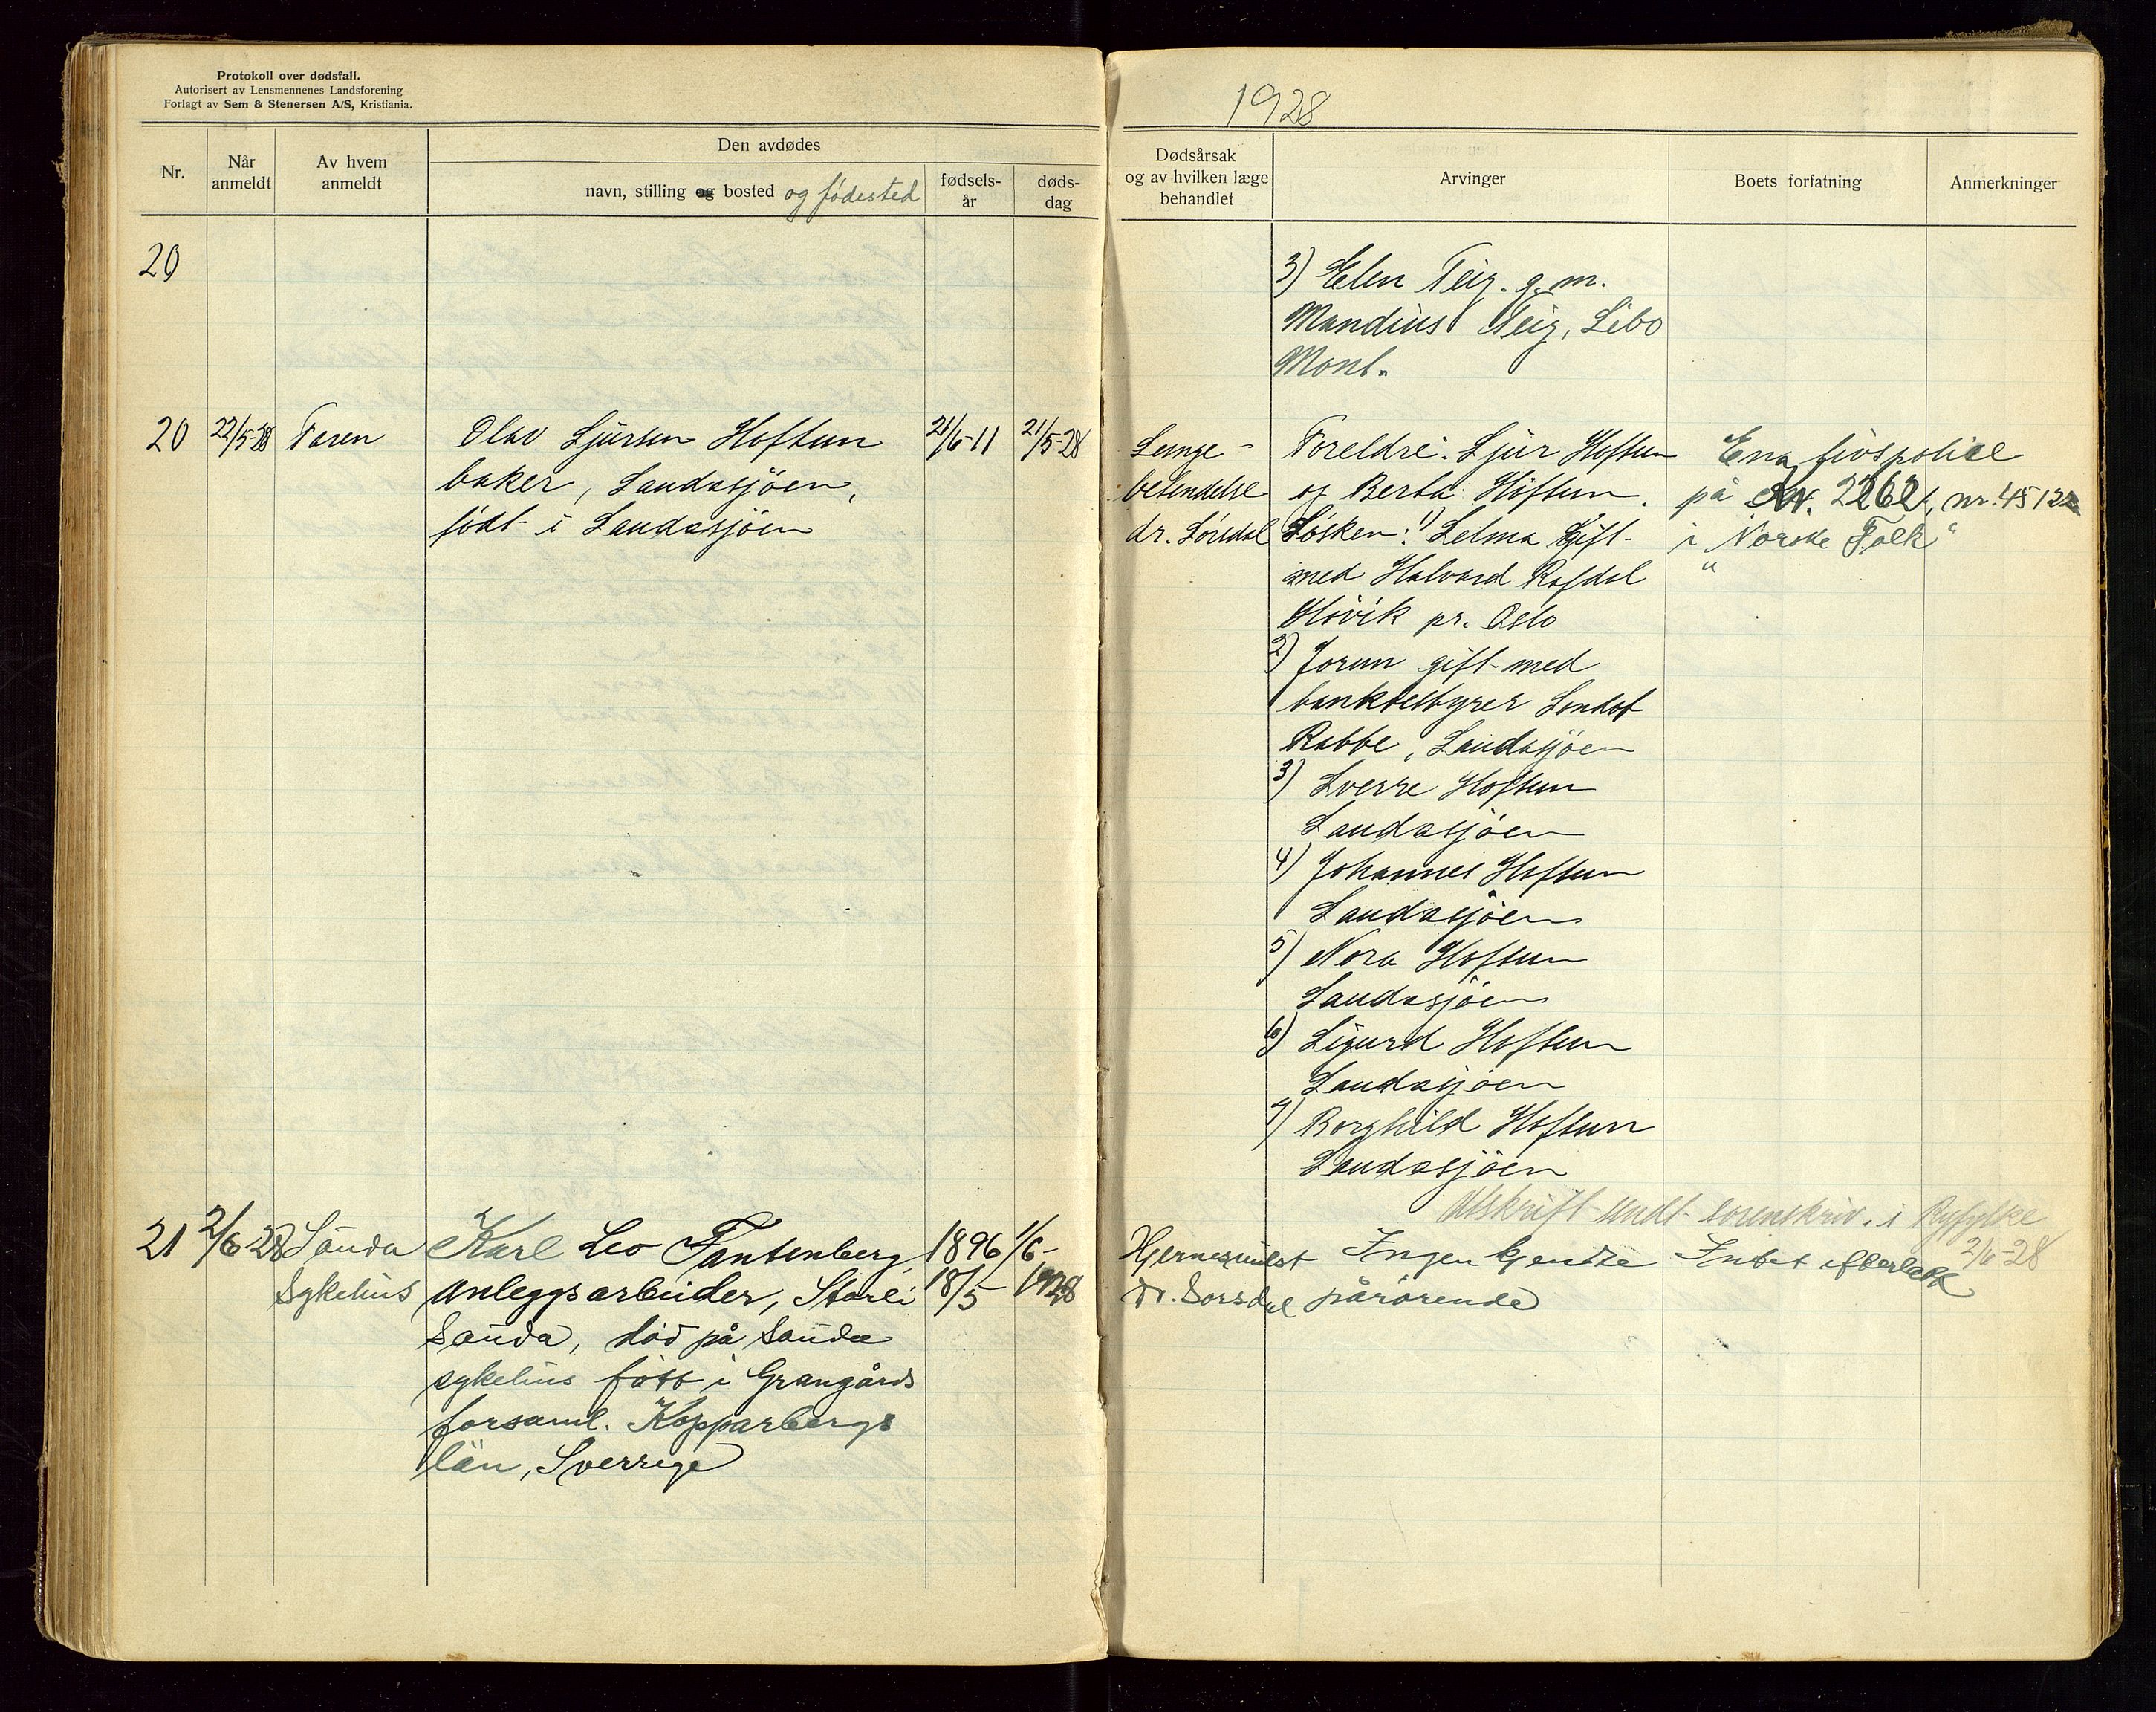 Protokoll over dødsfall.
Autorisert av Lensmennenes Landsforening
Forlagt av Sem & Stenersen A/S, Kristiania.
1928
Nr.
Når anmeldt
Av hvem anmeldt
Den avdødes
navn, stilling og bosted og fødested
fødsels-år
døds-dag
Dødsårsak
og av hvilken læge
behandlet
Arvinger
Boets forfatning
Anmerkninger
20
3) Elen Teig. g. m.
Mandius Teig, Libo
Mont.
20 22/5-28 Faren Olav Sjursen Hoftun 21/5-28
baker, Saudasjöen,
født i Saudasjöen
Lunge-
betendelse
dr. Sörsdal
Foreldre: Sjur Hoftun
og Berta Hoftun.
Søsken: 1) Selma Gift
med Halvard Rafdal
Hövik pr. Oslo
2) Jorun gift med
bankbestyrer
Rabbe, Saudasjöen
3) Sverre Hoftun
Saudasjöen
4) Johannes Hoftun
Saudasjöen
5) Nora Hoftun
Saudasjöen
6) Sigurd Hoftun
Saudasjöen
7) Borghild Hoftun
Saudasjöen
livspolice
på Kr. nr. 45122
i "Norske Folk"
Utskrift sendt sorenskriv. i Ryfylke
2/6-28
21 2/6 28 Sauda Karl Leo Tantenberg, 1896 1/6-
Sykehus anleggsarbeider, Storli 18/5 1928
Sauda, död på Sauda
sykehus født i Grangårds
forsaml. Kopparbergs
län, Sverrige
Hjernesvulst
Dr. Sorsdal
Ingen kjendte
pårörende
Intet efterlatt